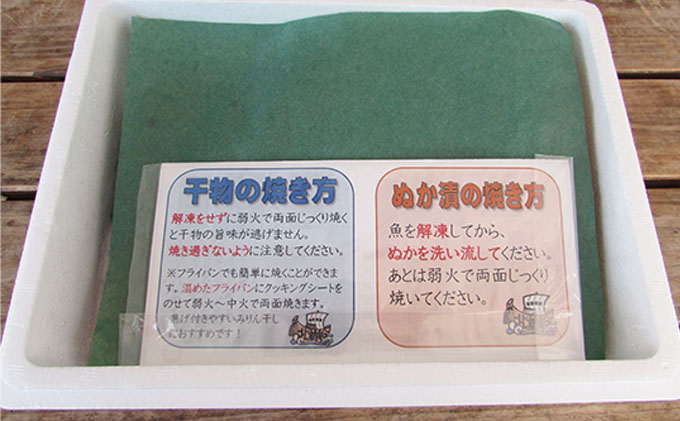 干物の焼き方
解凍をせずに弱火で両面じっくり焼く
と干物の旨味が逃げません。
焼き過ぎないように注意してください。
※フライパンでも簡単に焼くことができま
す。温めたフライパンにクッキングシートを
のせて弱火～中火で両面焼きます。
焦げ付きやすいみりん干し
におすすめです！
ぬか漬の焼き方
魚を解凍してから、
ぬかを洗い流してください。
あとは弱火で両面じっくり
焼いてください。